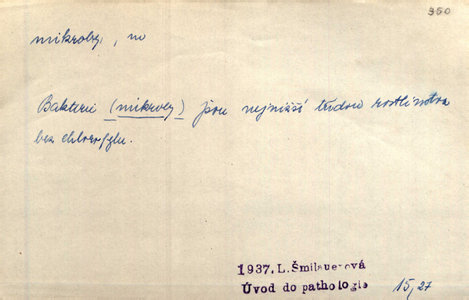 350
mikroby, no
Bakterie (mikroby) jsou nejnižší třídou rostlinstva
bez chlorofylu.
1937. L. Šmilauerová
Úvod do pathologie 15,27